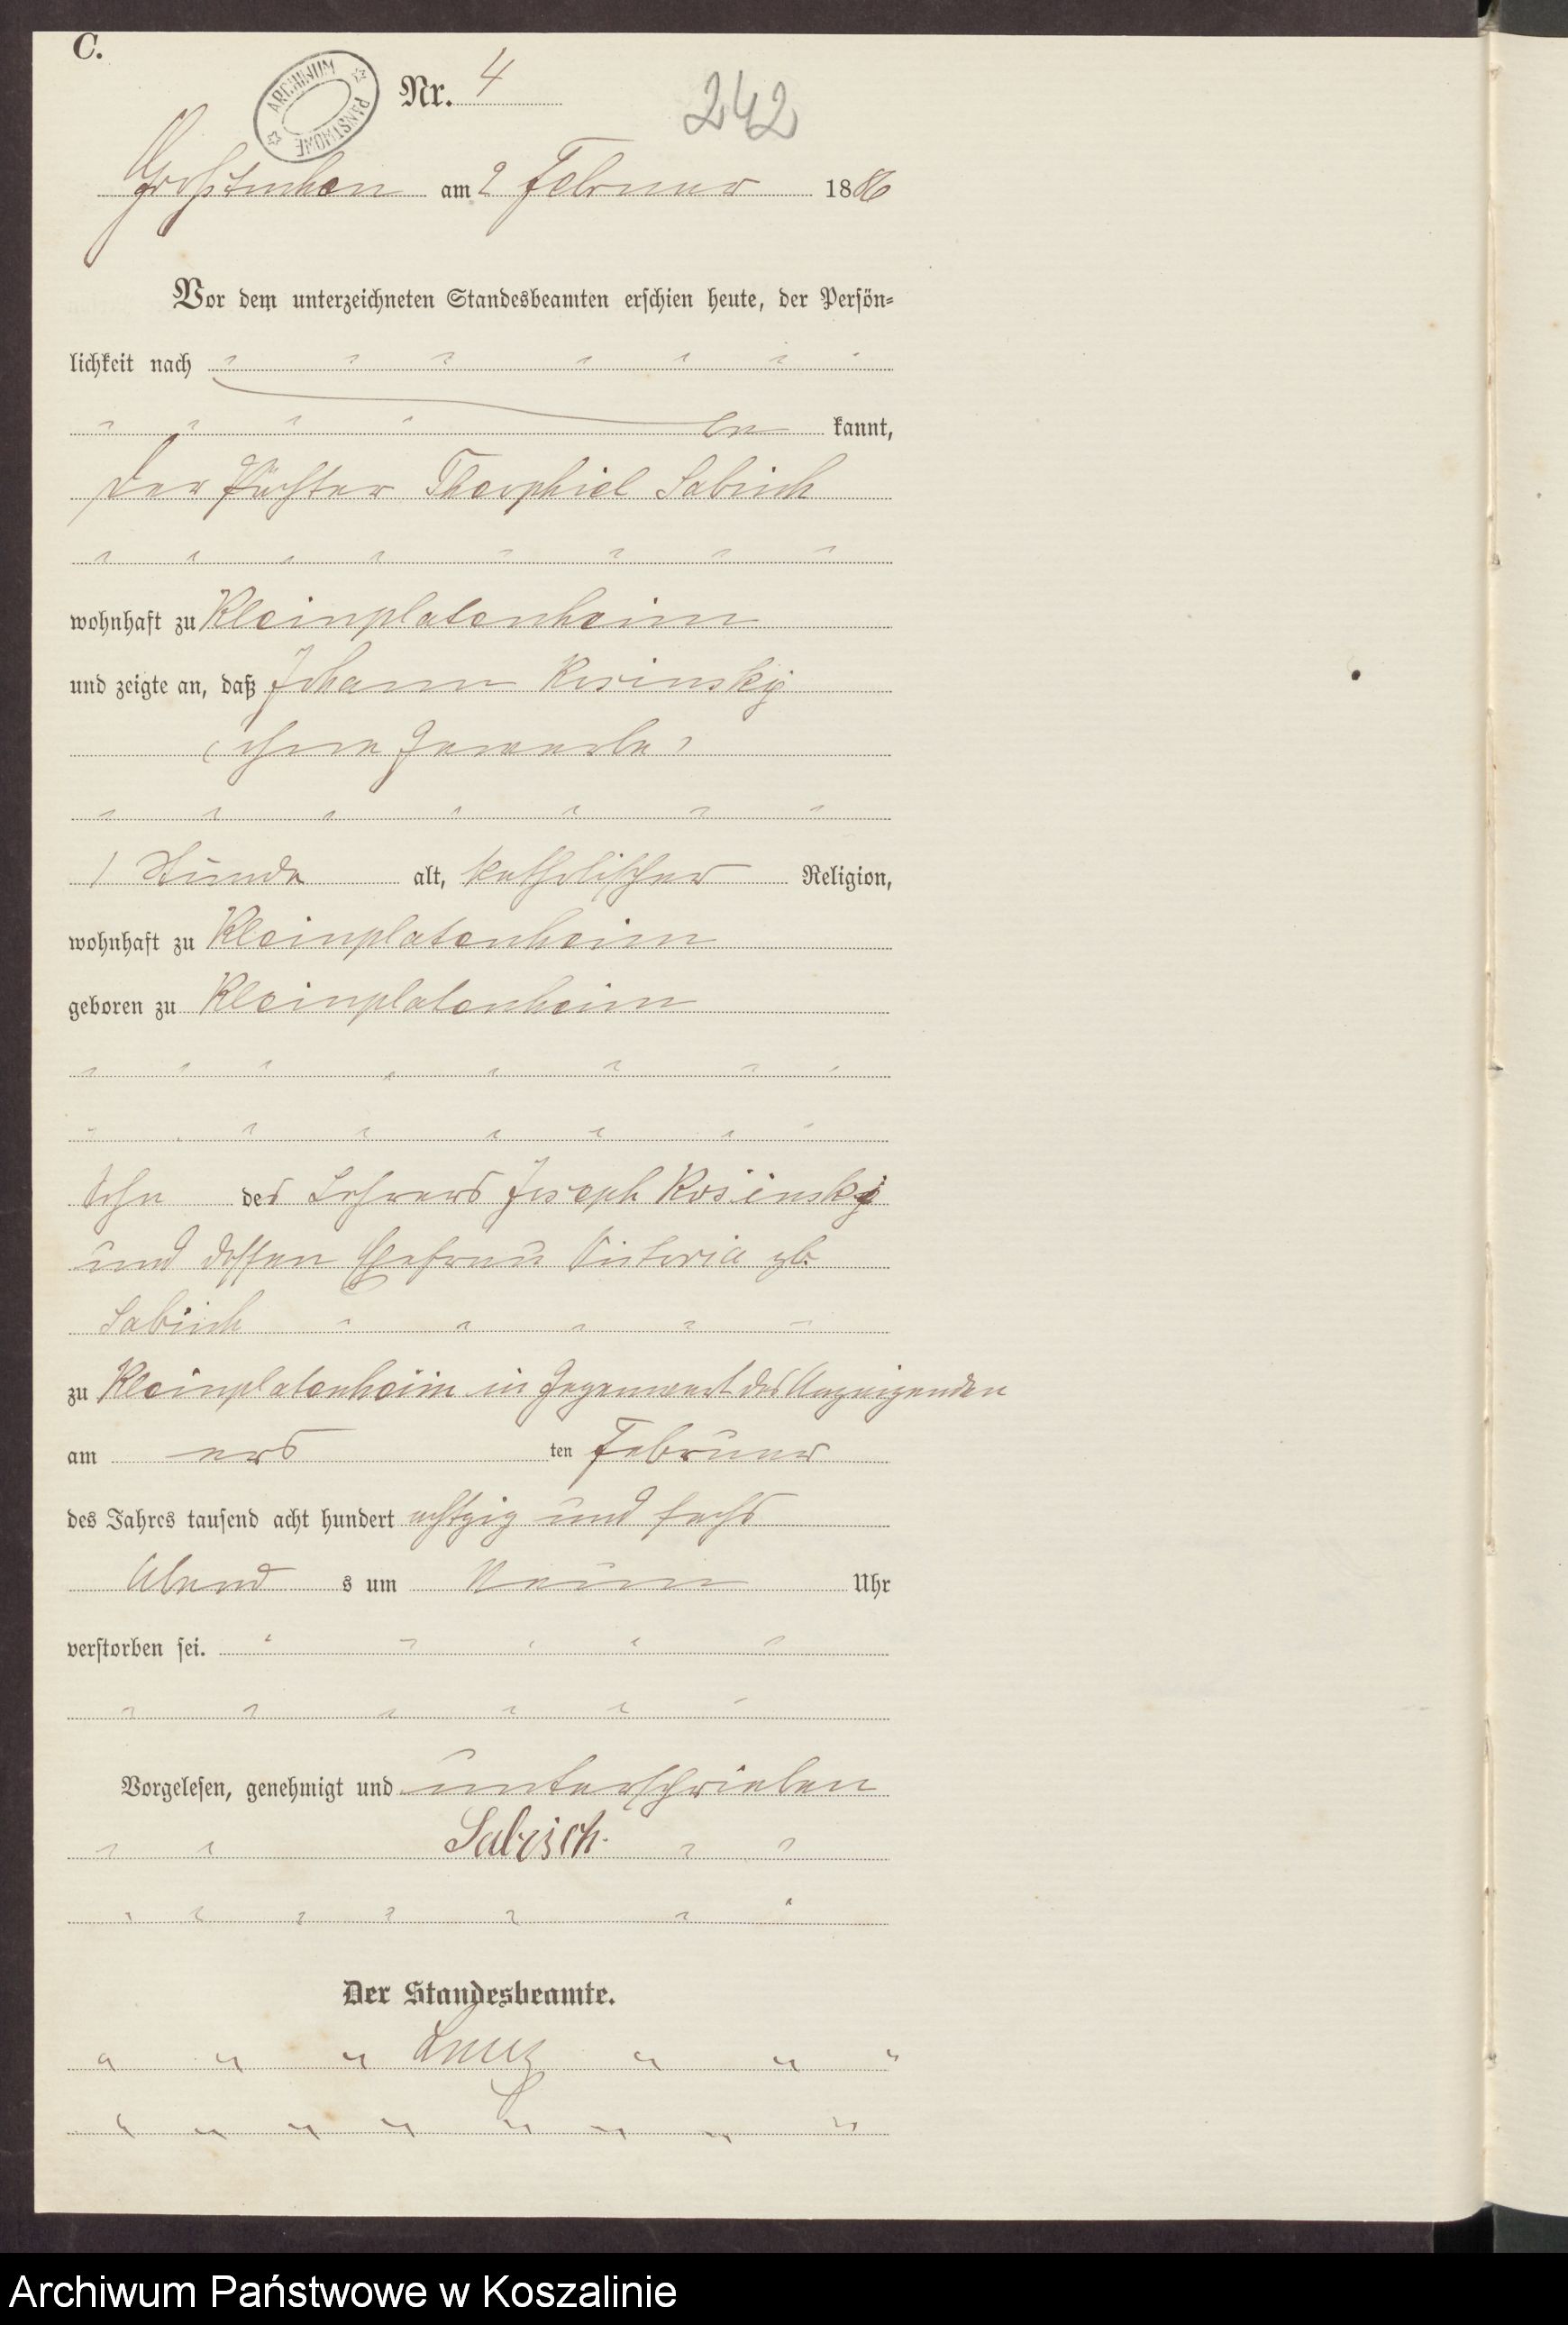 C.
ARCHIWUM PAŃSTWOWE
Nr. 4
242
Großtuchen am 2 Februar 1886
Vor dem unterzeichneten Standesbeamten erschien heute, der Persön=
lichkeit nach
be kannt,
der Pächter Theophiel Sabisch
wohnhaft zu Kleinplatenheim
und zeigte an, daß Johann Rosinsky
(ohne Gewerbe)
1 Stunde alt, katholischer Religion,
wohnhaft zu Kleinplatenheim
geboren zu Kleinplatenheim
Sohn des Lehrers Joseph Rosinsky
und dessen Ehefrau Victoria gb.
Sabisch
zu Kleinplatenheim in Gegenwart des Anzeigenden
am ers ten Februar
des Jahres tausend acht hundert achtzig und sechs
Abend s um Neun Uhr
verstorben sei.
Vorgelesen, genehmigt und unterschrieben
Sabisch.
Der Standesbeamte.
Archiwum Państwowe w Koszalinie